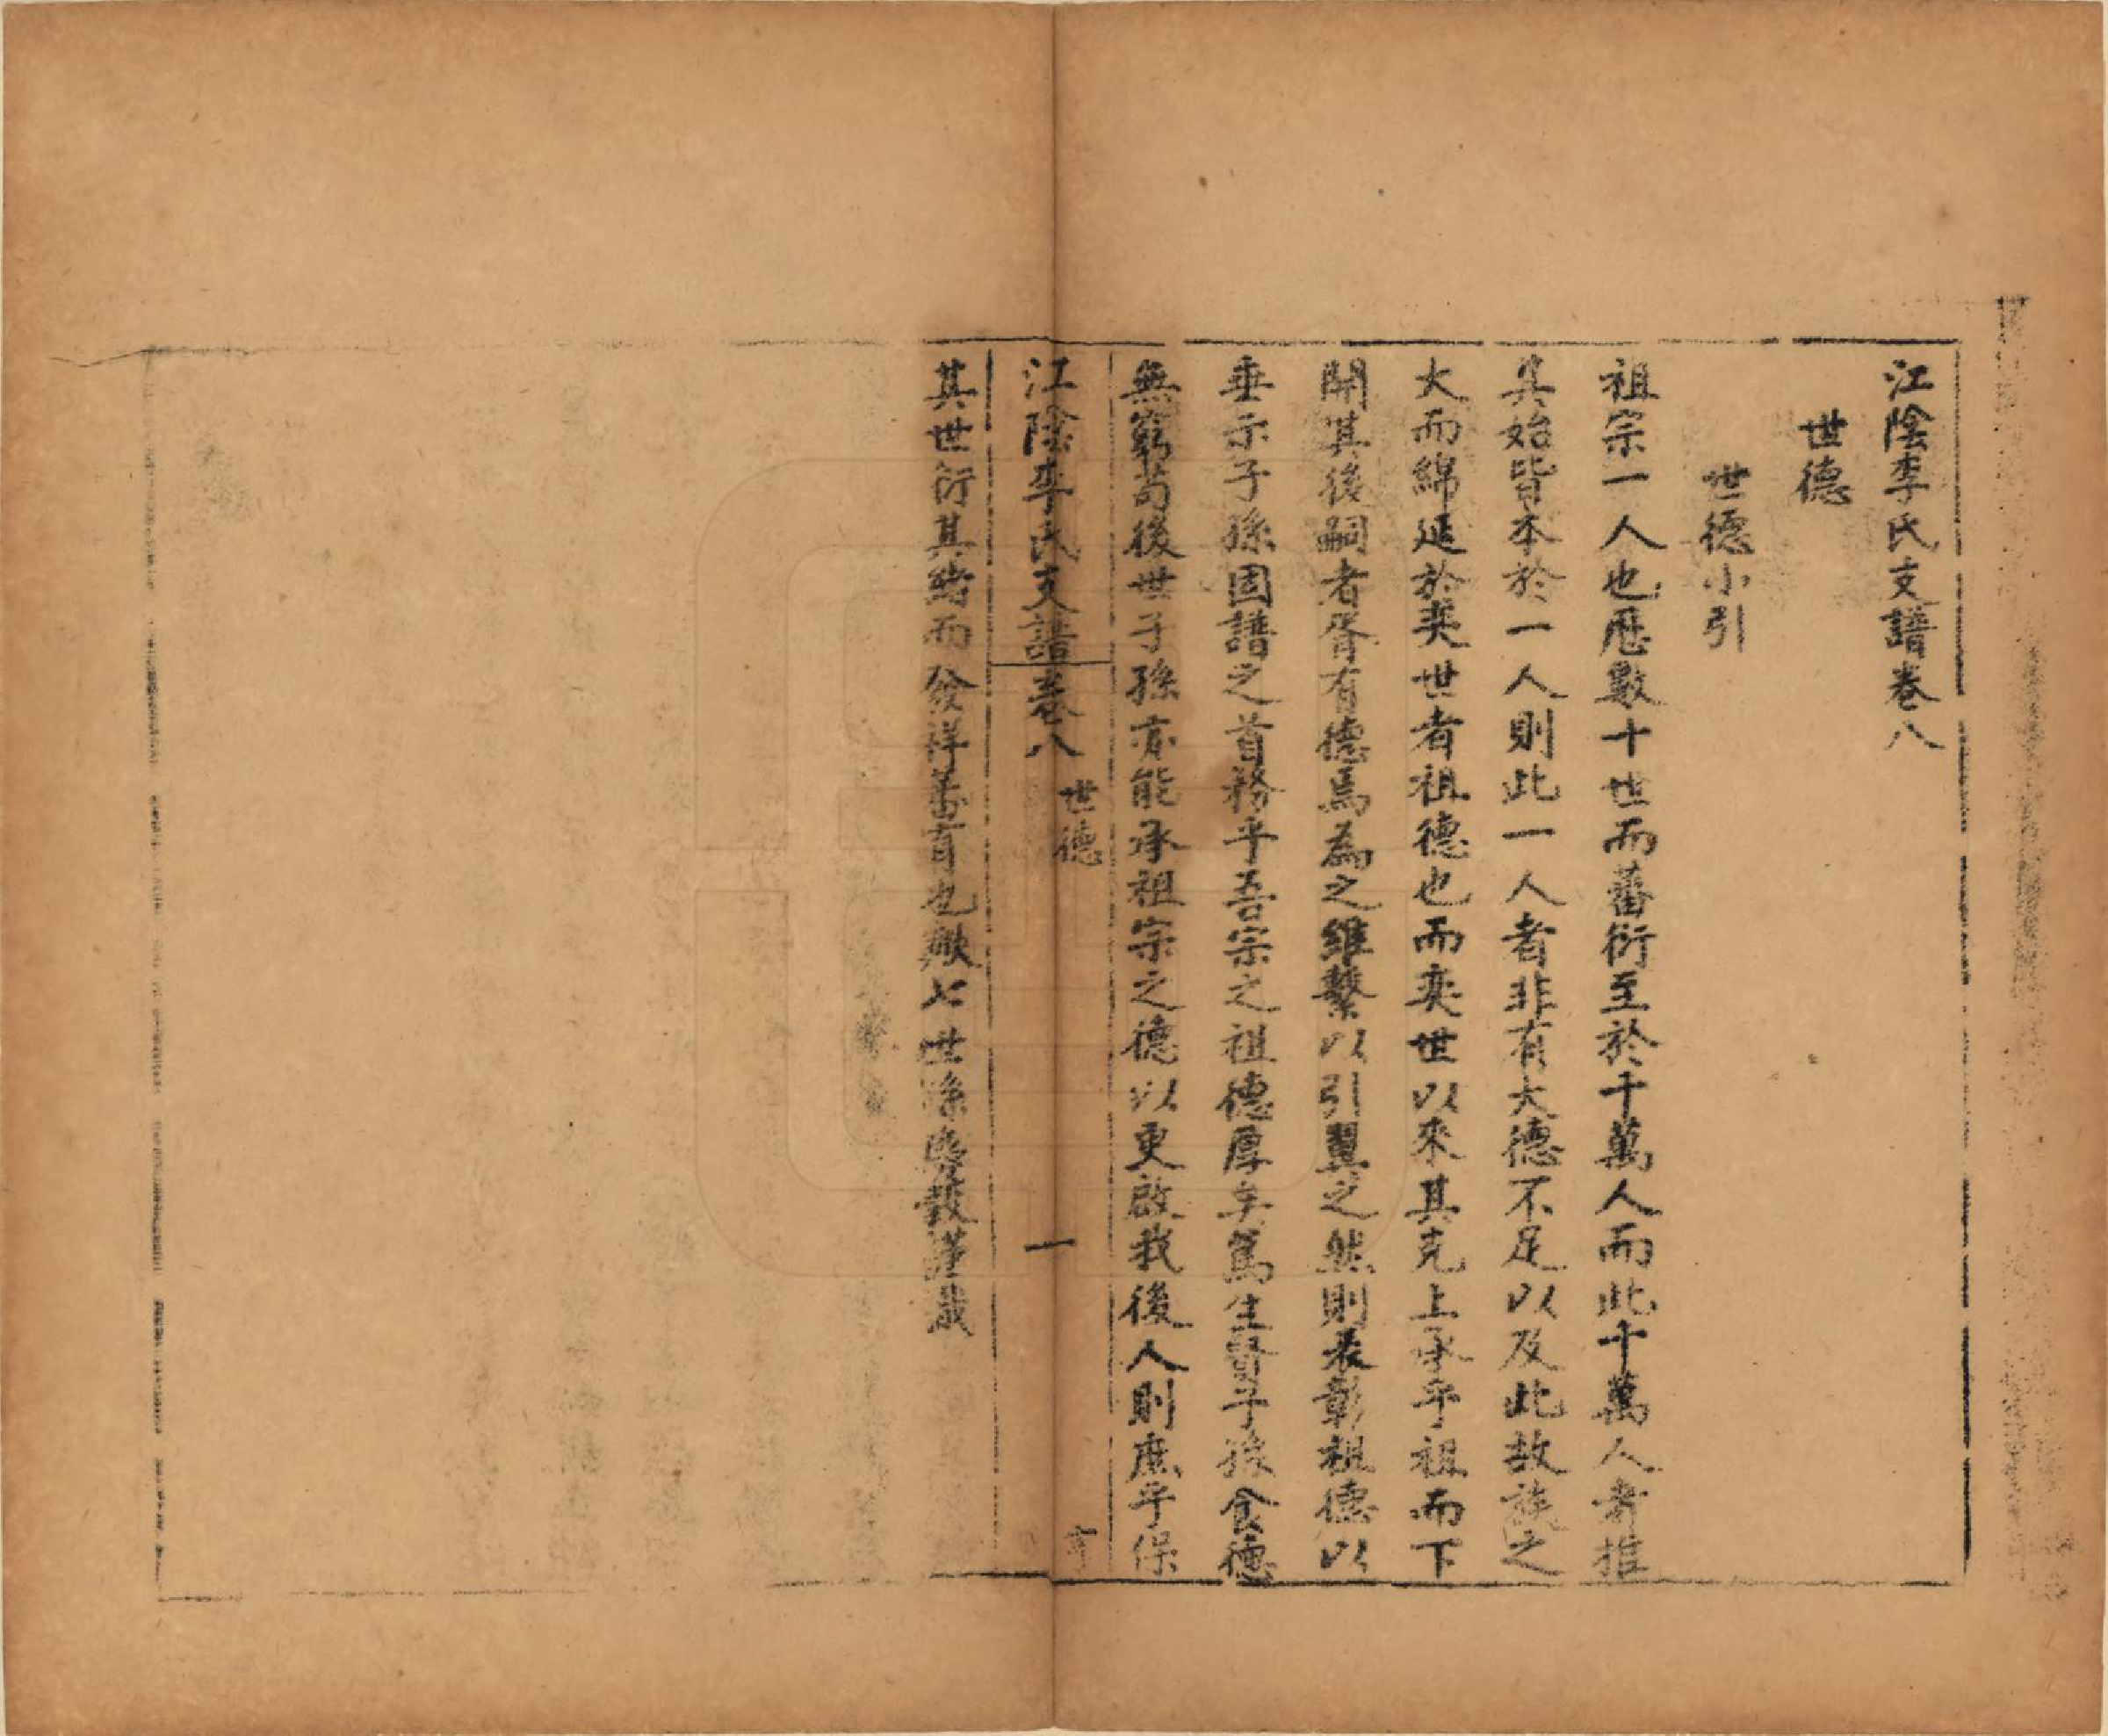 江陰李氏支譜卷八
世德
世德小引
祖宗一人也歷數十世而蕃衍至於千萬人而此千萬人者推
其始皆本於一人則此一人者非有大德不足以及此故族之
大而綿延於奕世者祖德也而奕世以來其克上承乎祖而下
開其後嗣者胥有德焉為之維繫以引翼之然則表彰祖德以
垂示子孫固譜之首務乎吾宗之祖德厚矣篤生賢子孫食德
無窮苟後世子孫亦能承祖宗之德以更啟我後人則庶乎保
江陰李氏支譜 卷八 世德 一
其世衍其緒而發祥蕃育也歟七世孫 謹識